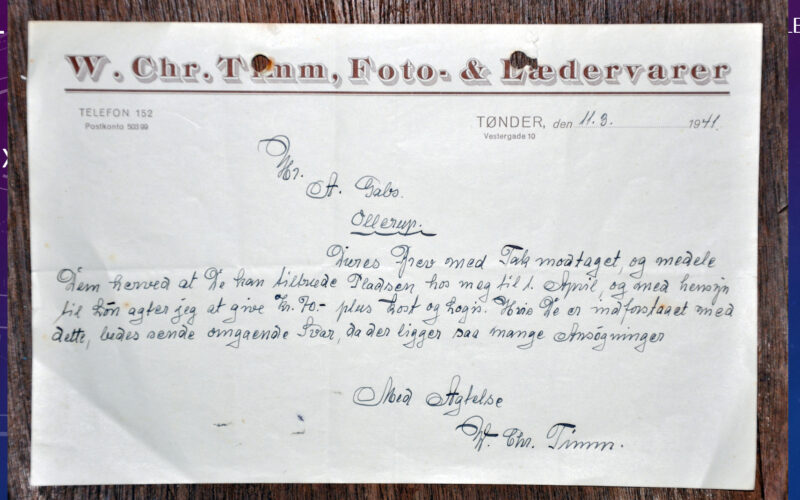 W. Chr. Timm, Foto- & Lædervarer
TELEFON 152
Postkonto 503 99
TØNDER, den 11.3. 1941.
Vestergade 10
Hr.
A. Gabs.
Ollerup.
Deres Brev med Tak modtaget, og medele
Dem herved at De kan tiltræde Pladsen hos mig til 1. April, og med hensyn
til Løn agter jeg at give Kr. 70.- plus Kost og Logi. Hvis De er indforstaaet med
dette, bedes sende omgaaende Svar, da der ligger saa mange Ansøgninger
Med Agtelse
W. Chr. Timm.